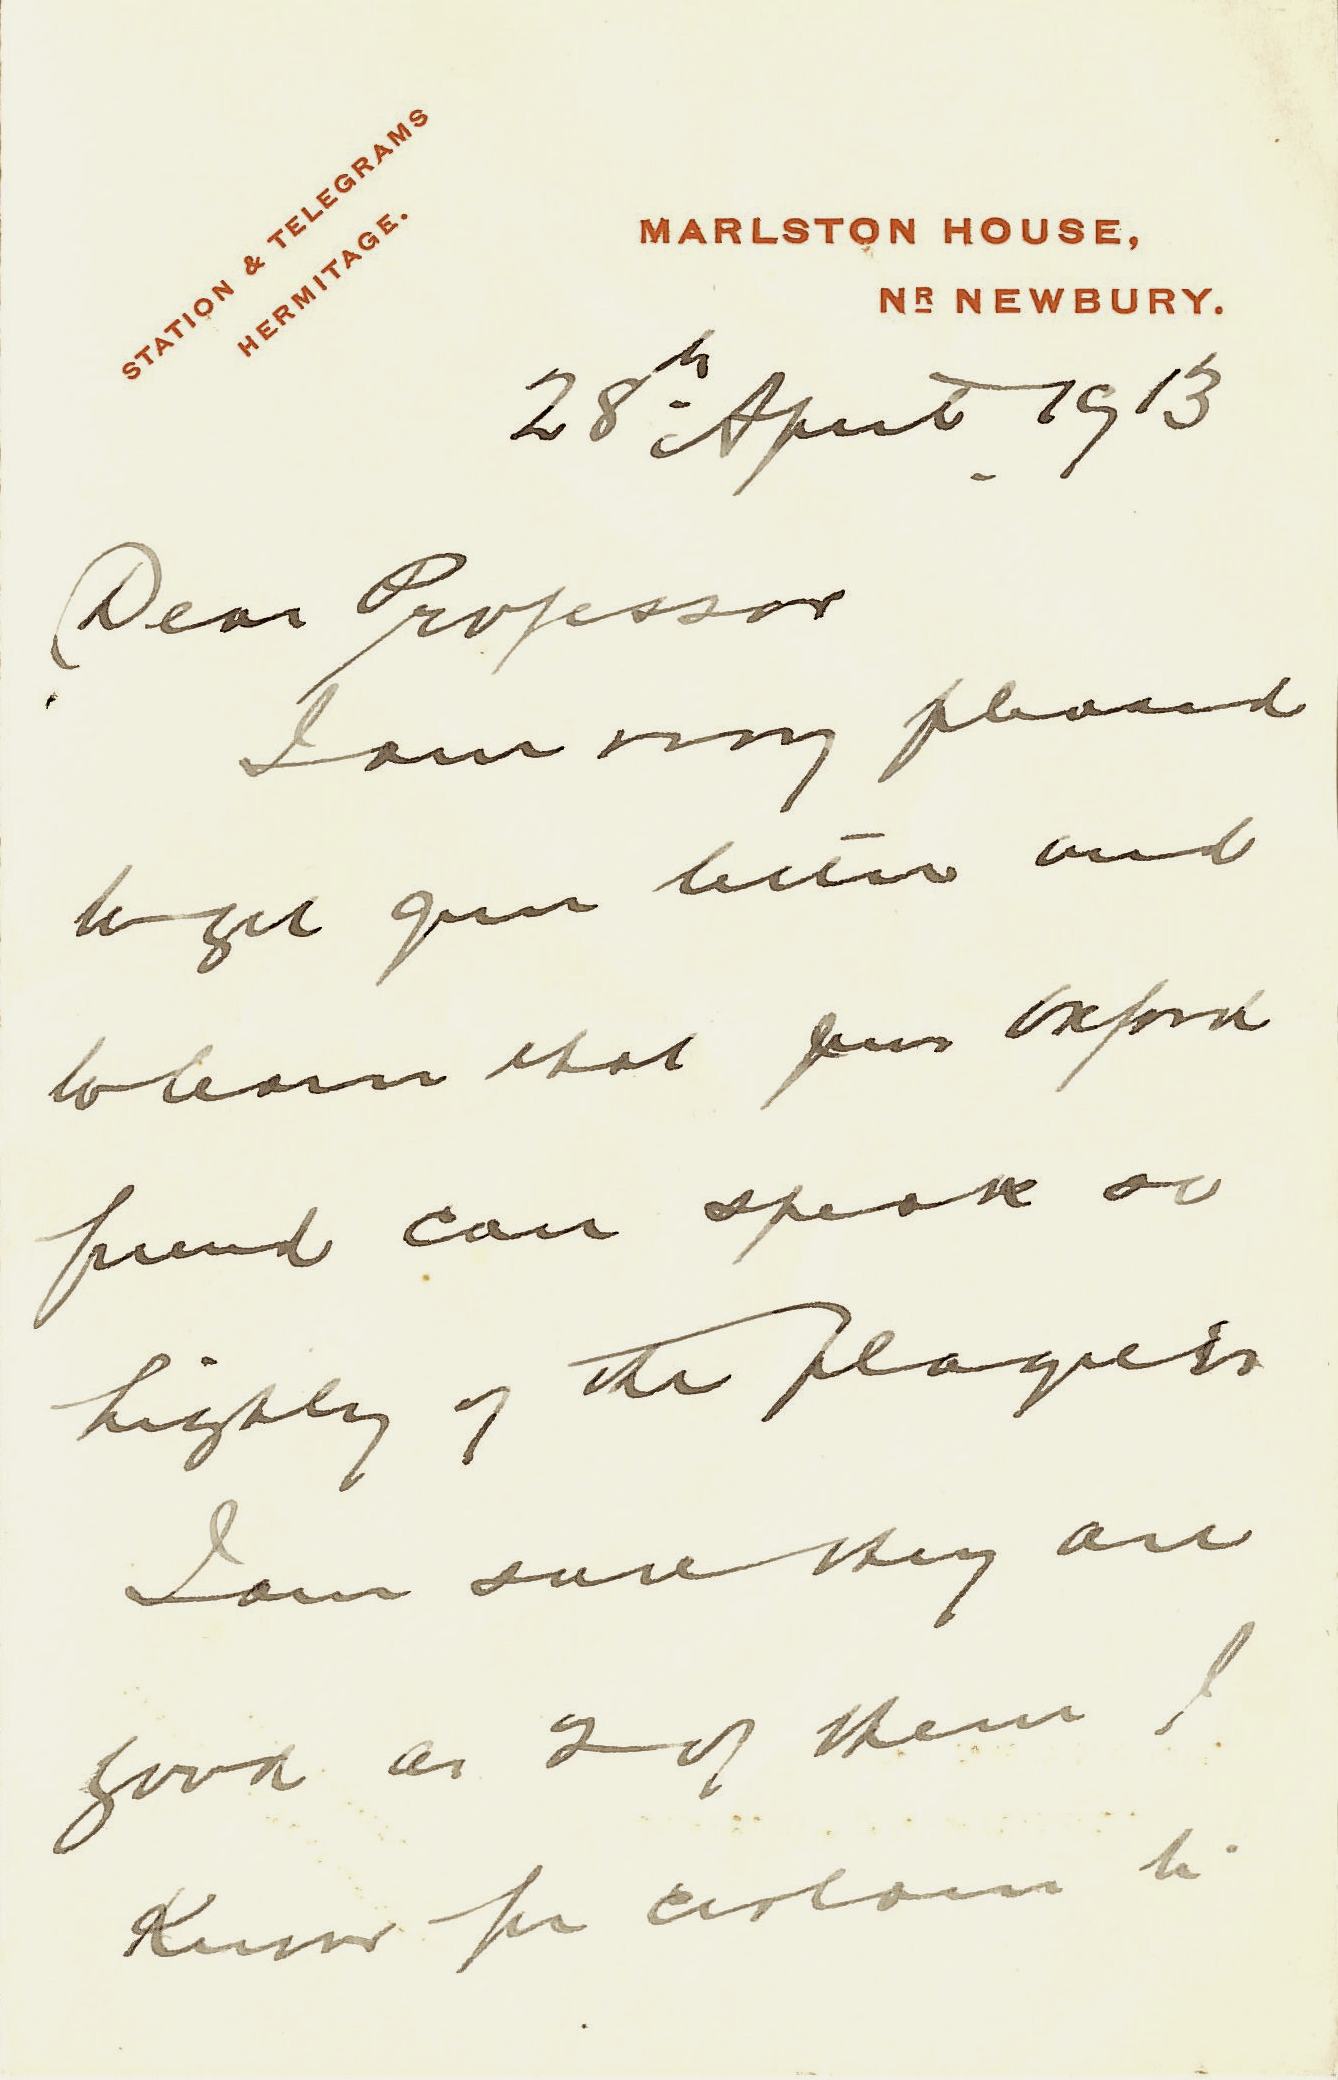 STATION & TELEGRAMS
HERMITAGE.
MARLSTON HOUSE,
NR NEWBURY.
28th April 1913
Dear Professor
I am very pleased
to get your letter and
to learn that your Oxford
friend can speak so
highly of the players
I am sure they are
good as 2 of them I
Know for certain to